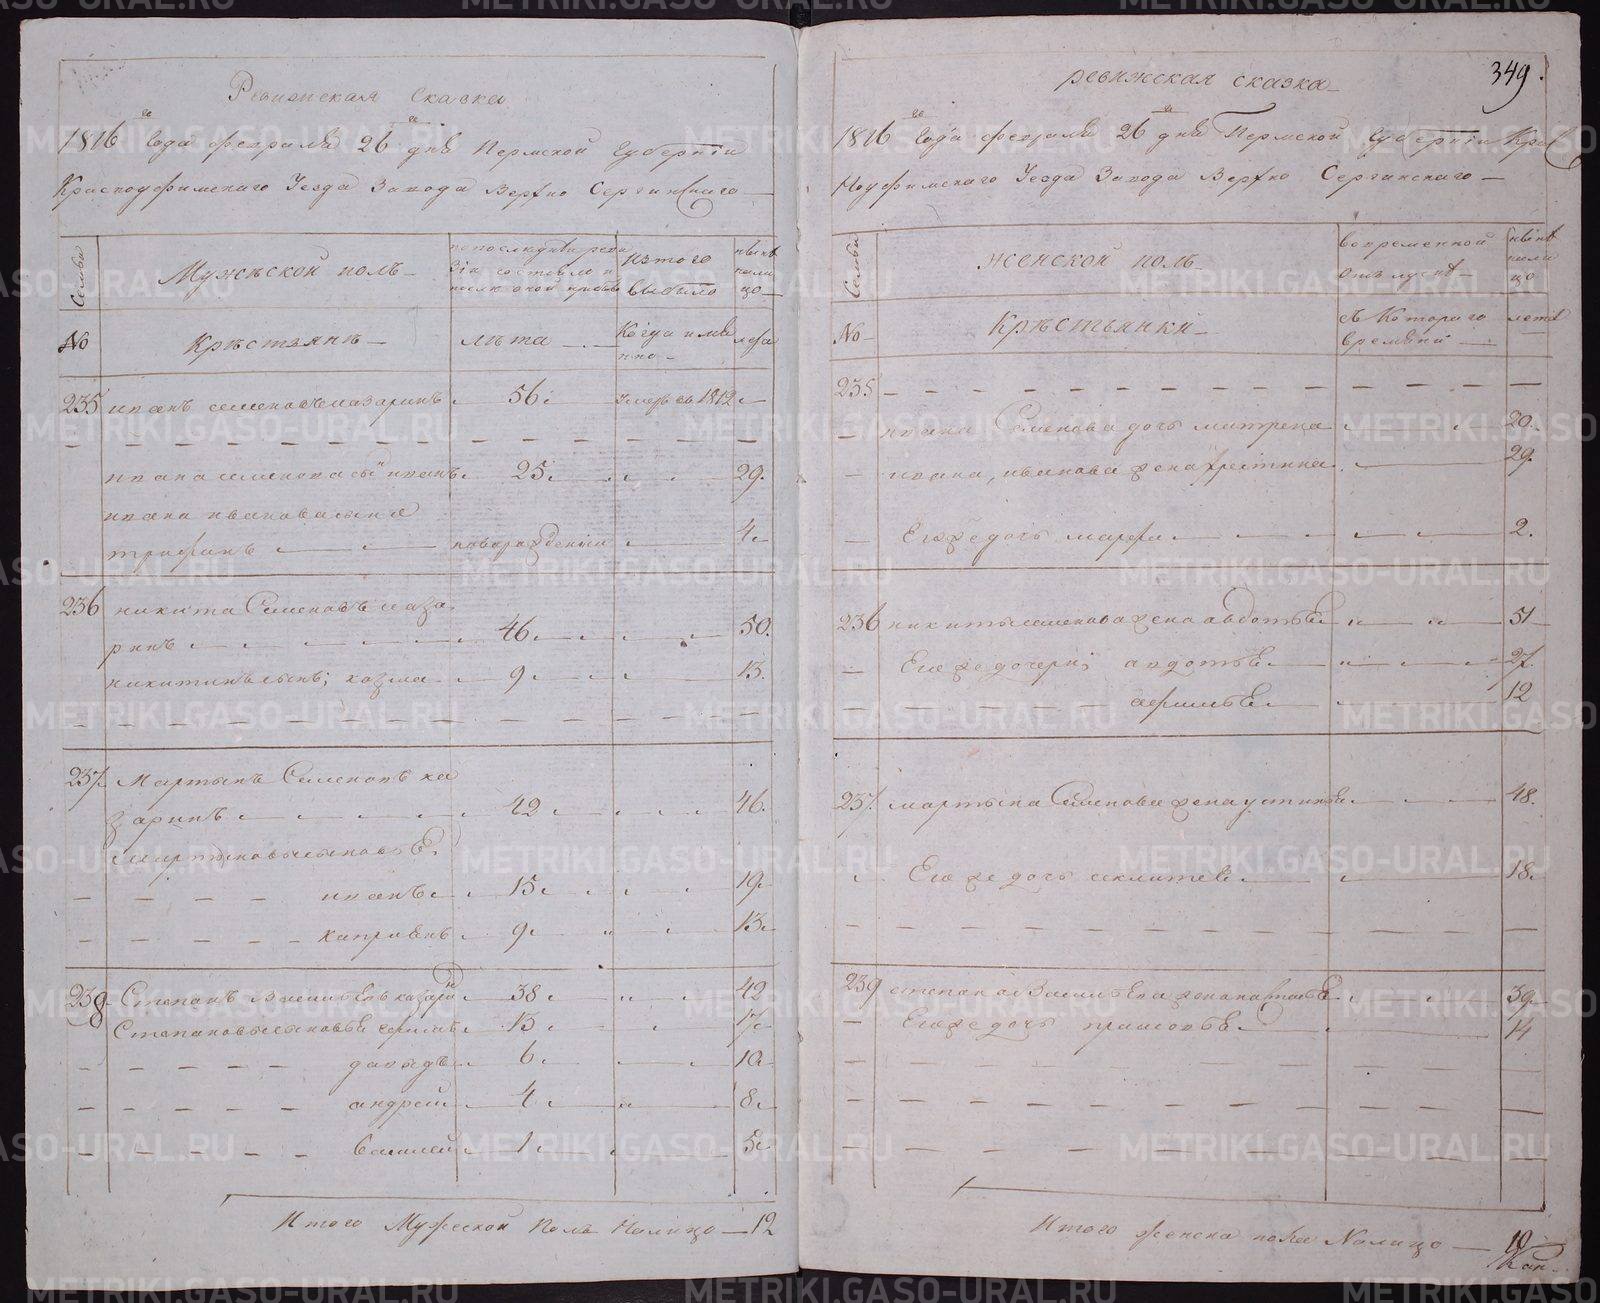 Ревизская сказка
1816 го года февраля 26 го дня Пермской Губернiи
Красноуфимскаго Уезда Завода Верхно Сергинскаго
Семьи
Мужеской полъ
по последней реви
зiи состояло и
после оной прибыло
из того
выбыло
ныне
нали
цо
No
Крѣстьянѣ
лѣта
Когда имян
но
лета
235 иванъ семеновъ назаринъ 56 умеръ въ 1812
ивана семенова сынъ иванъ 25 29.
ивана иванова сынъ
трифонъ новорожденный 4
236 никита Семеновъ наза
ринъ 46 50.
никитинъ сынъ; козма 9 13.
237. Мартынъ Семеновъ на
заринъ 42 46.
Мартыновы сыновьѣ
иванъ 15 19
каприянъ 9 13
238 Степанъ Васильевъ назаринъ 38 42
Степановы сыновье ефимъ 13 17
давыдъ 6 10
андрей 4 8
Василей 1 5
Итого Мужеской Полъ Налицо — 12
349.
ревижская сказка
1816 го года февраля 26 го дня Пермской Губернiи Крас
ноуфимскаго Уезда Завода Верхно Сергинскаго
Семьи
женской полъ
во временной
отлучке
ныне
нали
цо
No
Крѣстьянки
съ Котораго
времяни
лета
235
ивана Семенова дочь матрена 20.
ивана, иванова жена 29.
Его же дочь марфа 2.
236 никиты семенова жена авдотья 51
Его же дочери; авдотья 27.
афимья 12
237. мартына Семенова жена устинья 48.
Его же дочь 18.
239 степана Васильева жена 39
Его же дочь 14
Итого женска пола Налицо — 10
METRIKI.GASO-URAL.RU